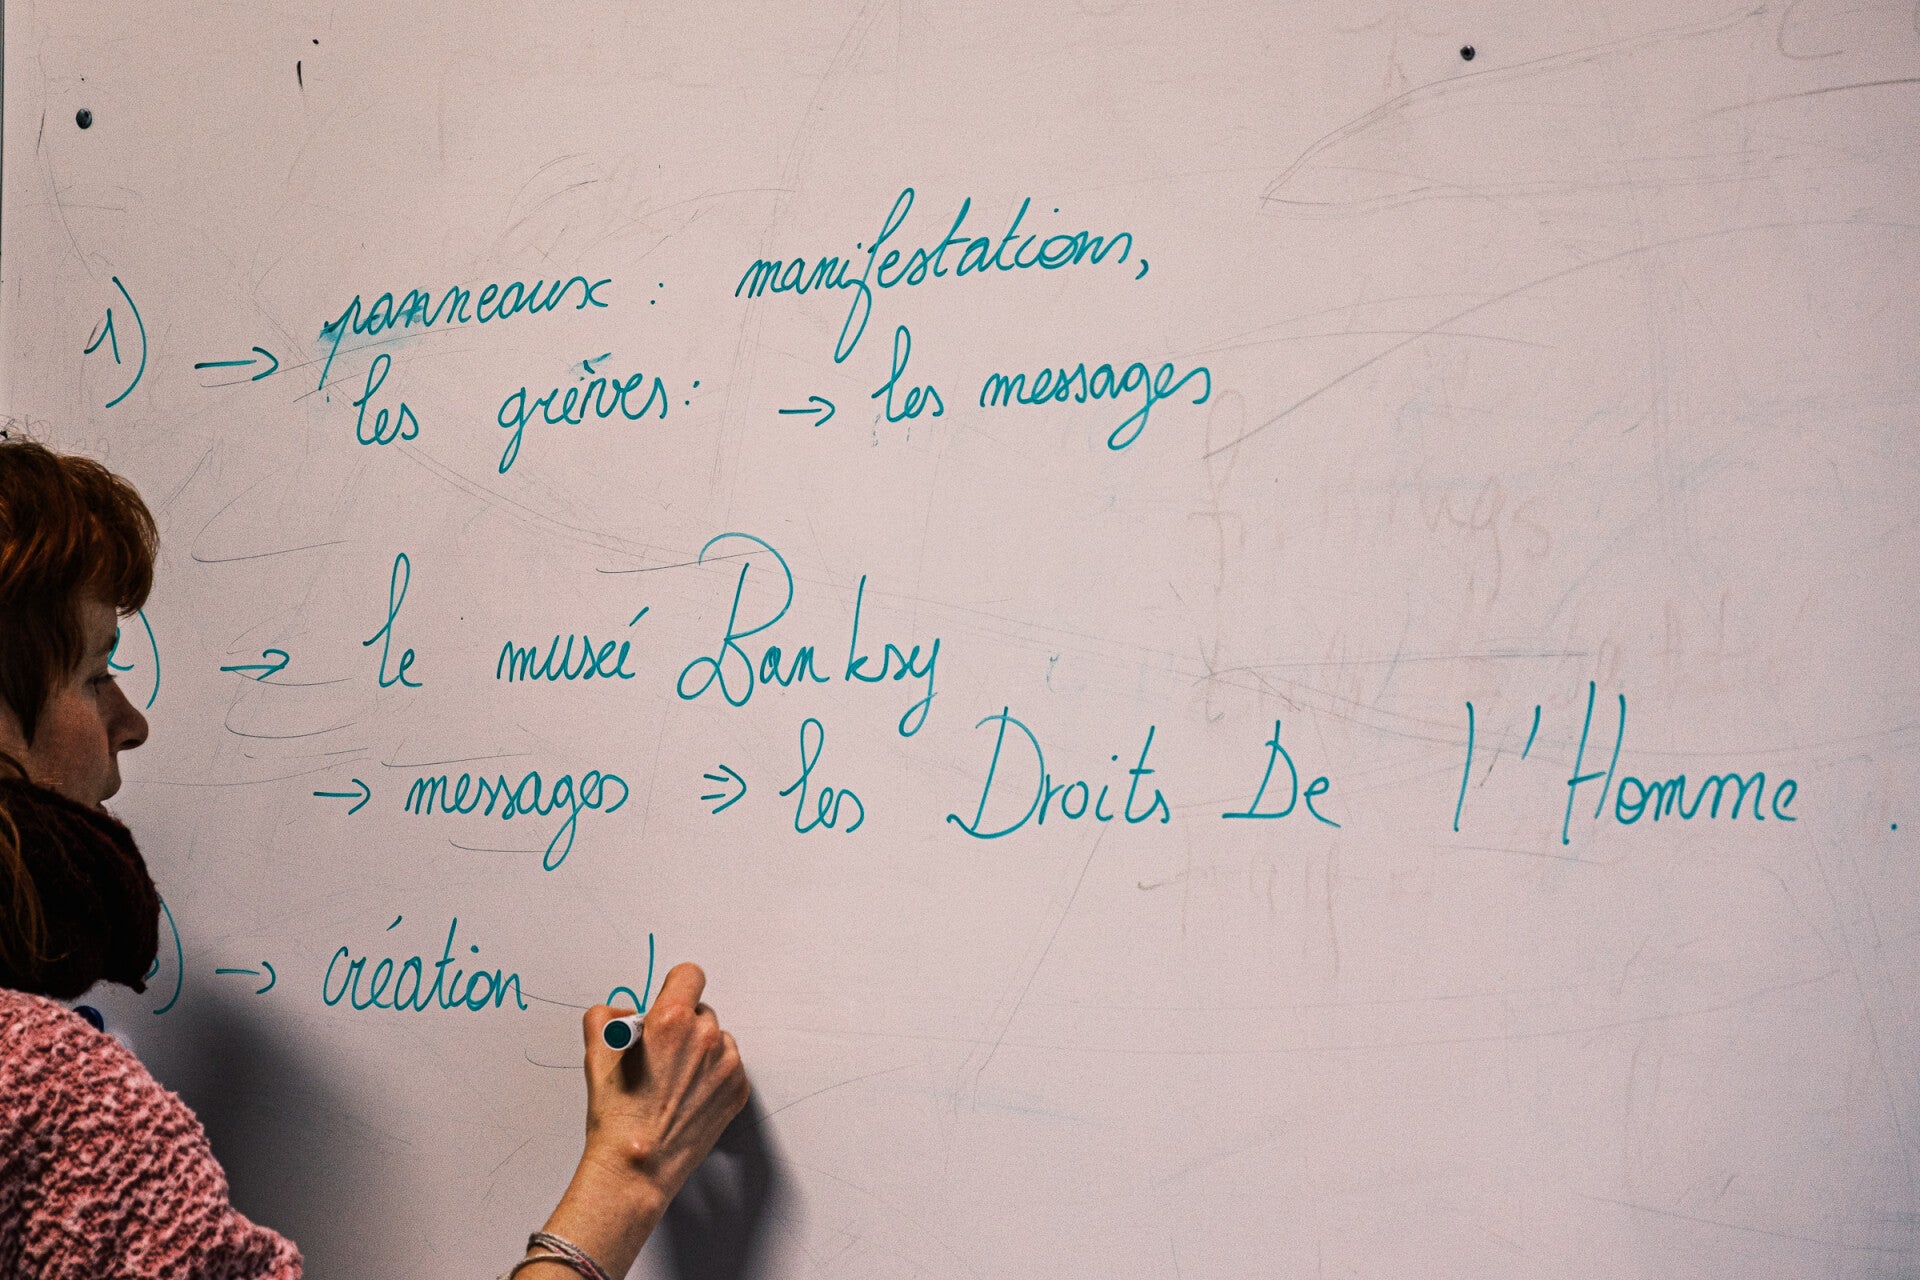 1) → panneaux : manifestations,
les grèves : → les messages
2) → le museé Banksy
→ messages ⇒ les Droits De l'Homme .
3) → création d